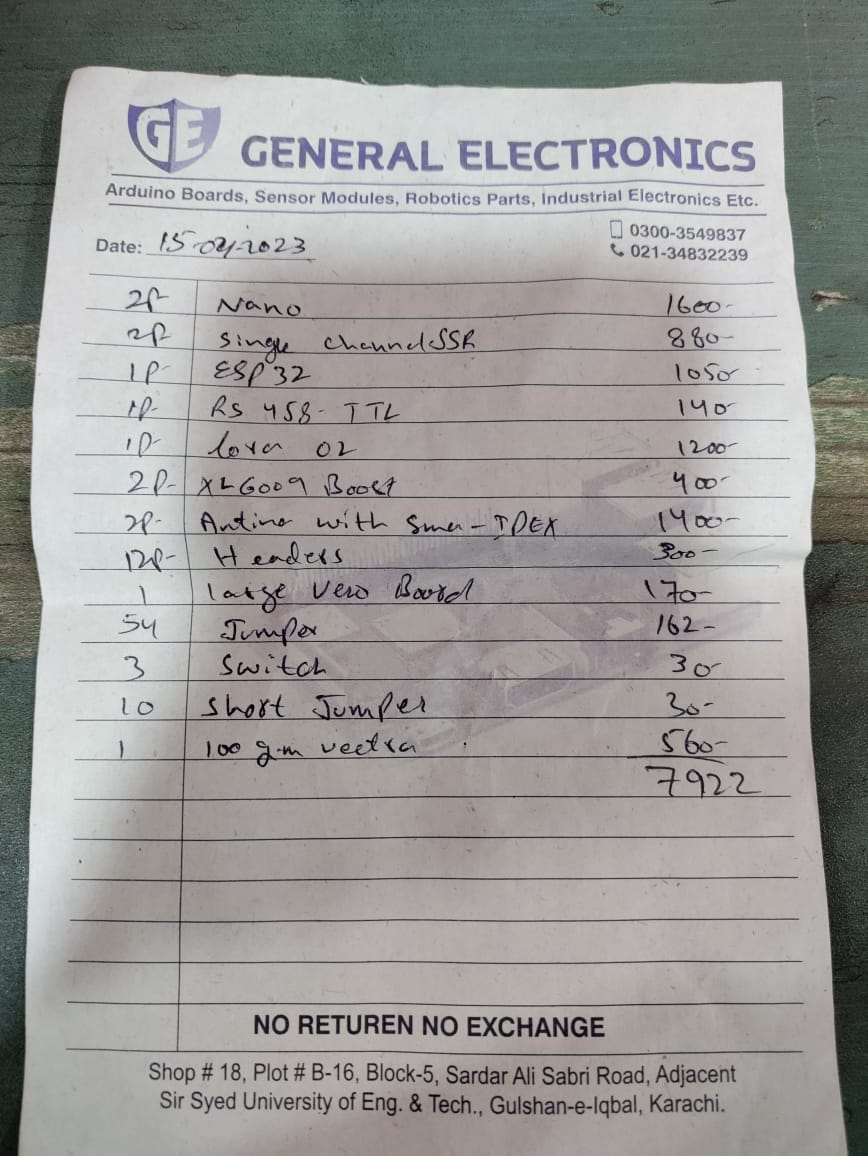 GE
GENERAL ELECTRONICS
Arduino Boards, Sensor Modules, Robotics Parts, Industrial Electronics Etc.
0300-3549837
Date: 15-04-2023
021-34832239
2P- Nano 1600-
2P Single channel SSR 880-
1P- ESP32 1050-
1P- RS 458- TTL 140-
1P- lora 02 1200-
2P- XL6009 Boost 400-
2P- with Sma - IPEX 1400-
12P- Headers 300-
1 large Vero Board 170-
54 Jumper 162-
3 Switch 30-
10 Short Jumper 30-
1 100 gm 560-
7922
NO RETUREN NO EXCHANGE
Shop # 18, Plot # B-16, Block-5, Sardar Ali Sabri Road, Adjacent
Sir Syed University of Eng. & Tech., Gulshan-e-Iqbal, Karachi.